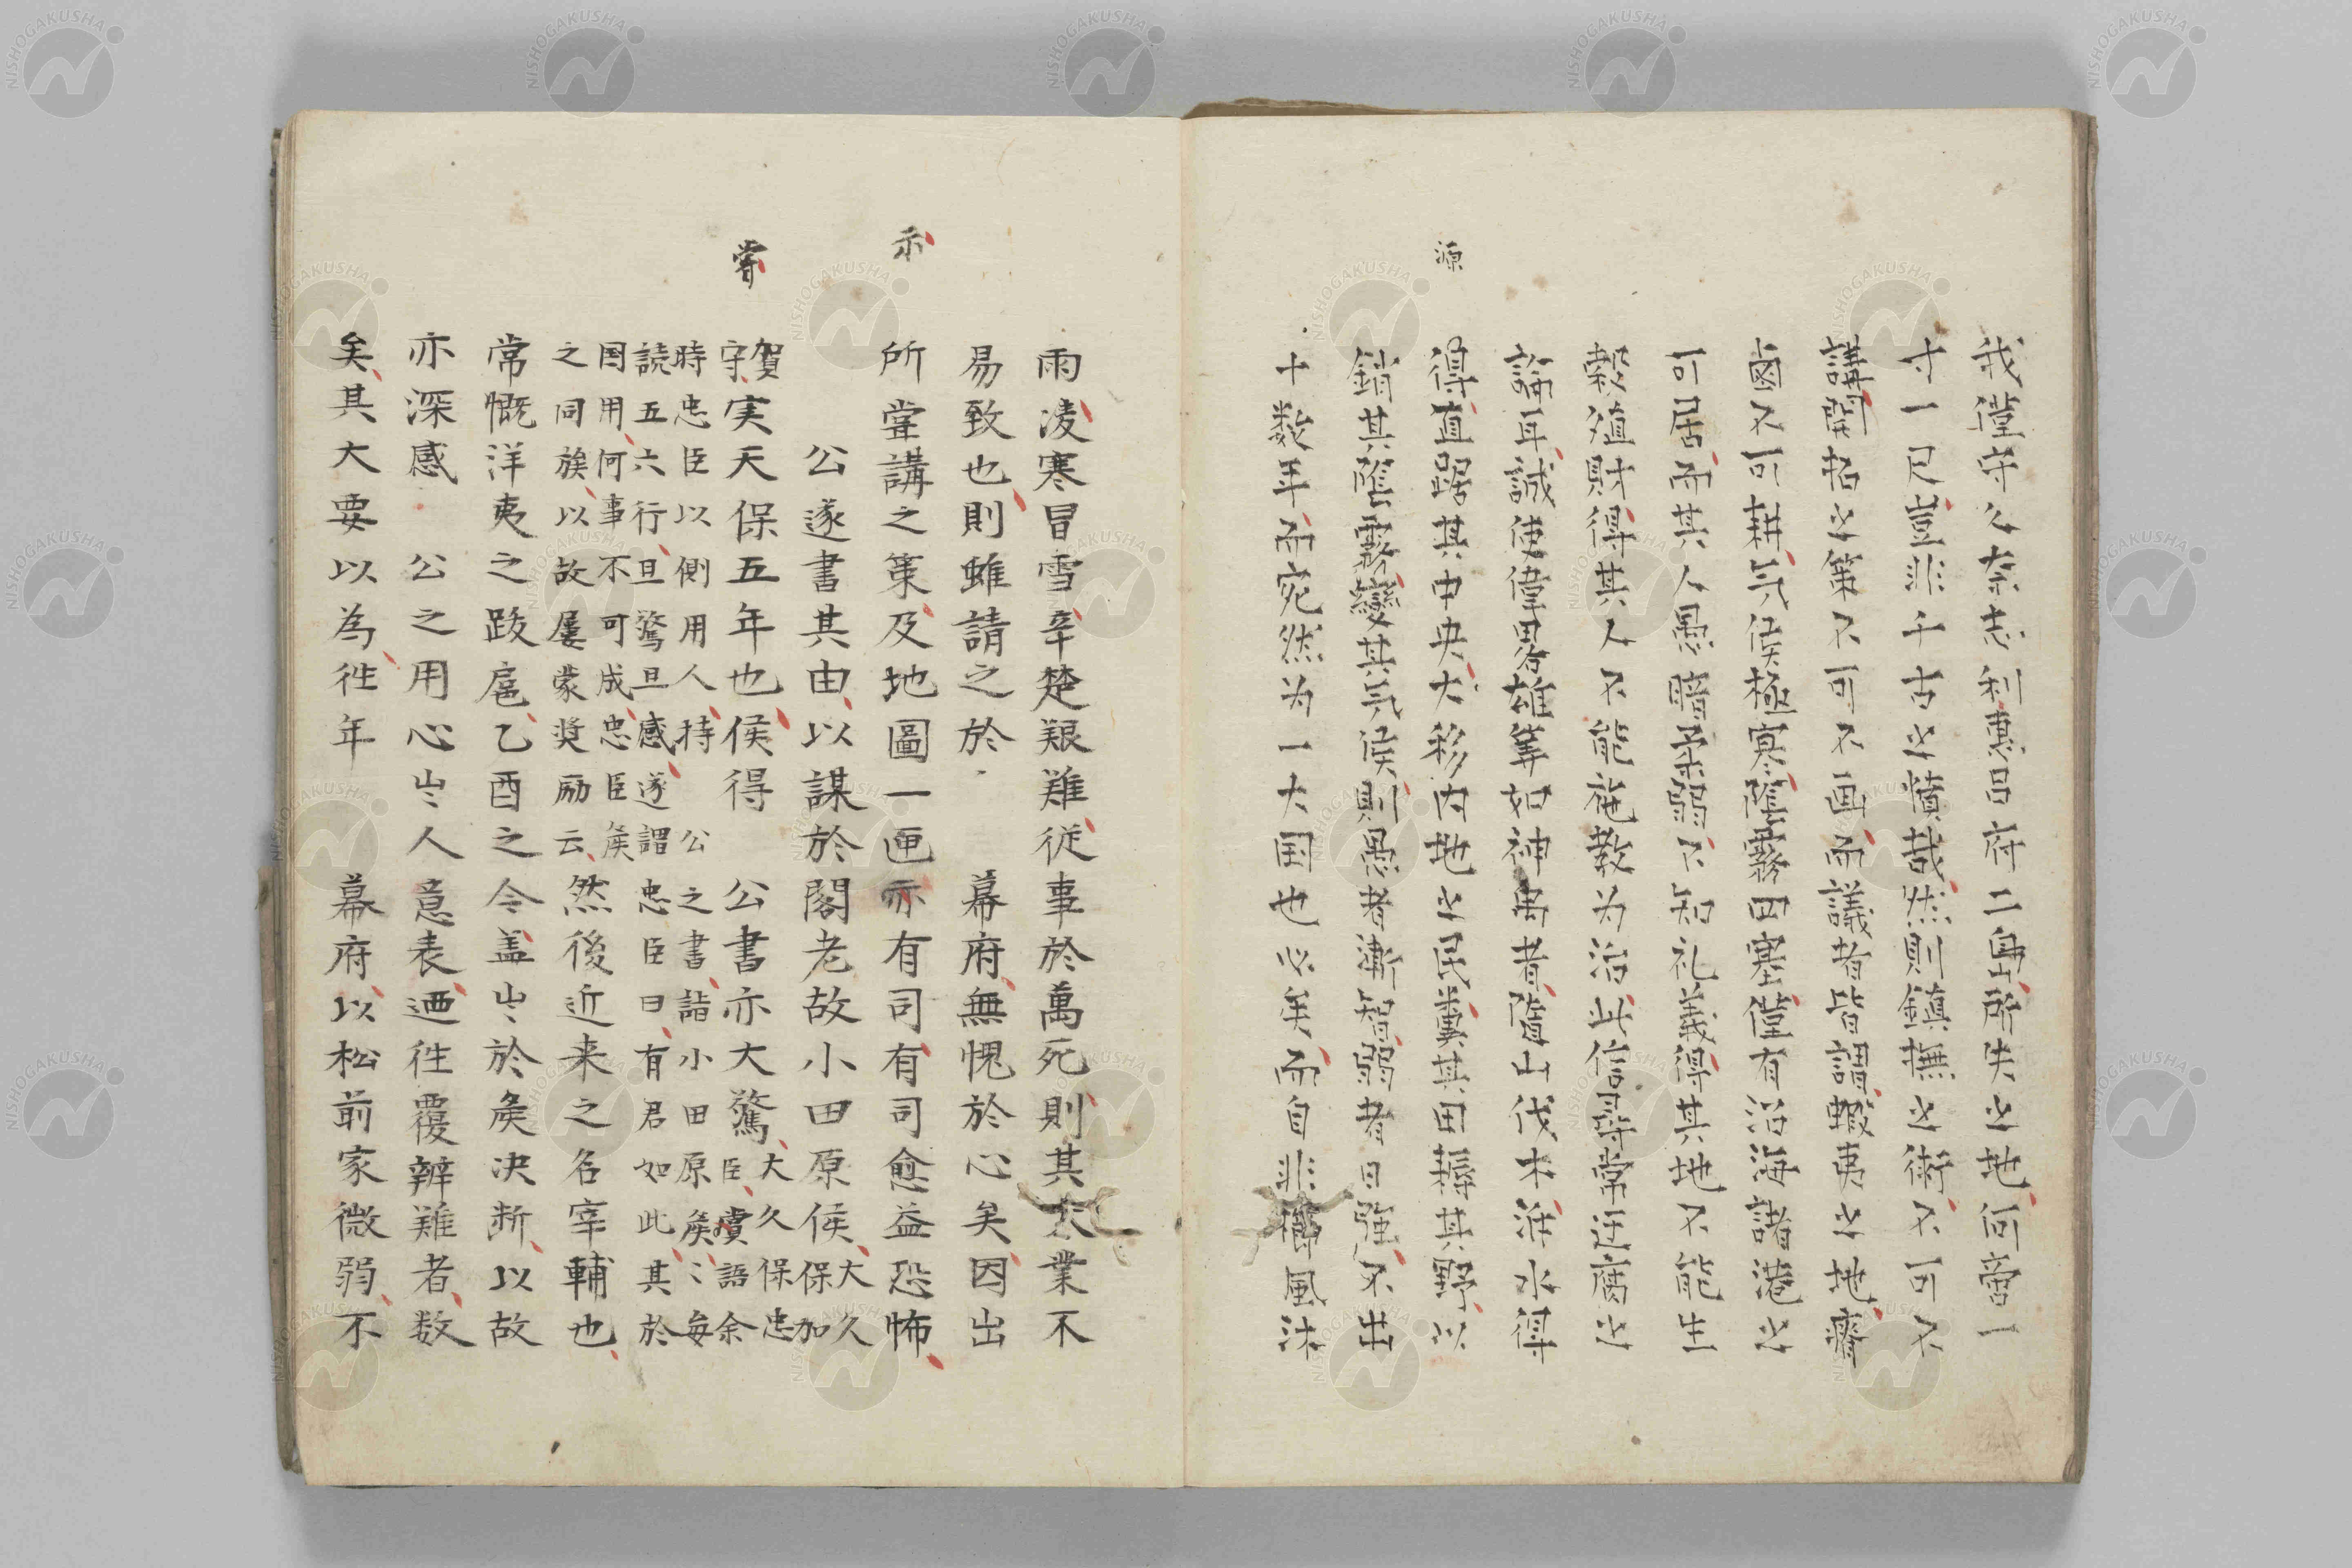 源
我僅守久奈志利惠呂府二島所失之地何啻一
寸一尺豈非千古之憤哉然則鎮撫之術不可不
講開拓之策不可不画而議者皆謂蝦夷之地瘠
鹵不可耕気候極寒陰霧四塞僅有沿海諸港之
可居而其人愚暗柔弱不知礼義得其地不能生
穀殖財得其人不能施教为治此信尋常迂腐之
論耳誠使偉畧雄筭如神禹者隨山伐木濬水得
得直踞其中央大移内地之民糞其田耨其野以
銷其陰霧變其気候則愚者漸智弱者日強不出
十数年而宛然为一大国也必矣而自非櫛風沐
示
嘗
雨凌寒冒雪辛楚艱難従事於萬死則其大業不
易致也則雖請之於 幕府無愧於心矣因出
所嘗講之策及地圖一匣亦有司有司愈益恐怖
公遂書其由以謀於閣老故小田原侯大久保加
賀守実天保五年也侯得 公書亦大驚大久保忠臣嘗語余
時忠臣以側用人持 公之書詣小田原矦〻毎
読五六行且驚且感遂謂忠臣曰有君如此其於
国用何事不可成忠臣矦
之同族以故屡蒙奨励云然後近来之名宰輔也
常慨洋夷之跋扈乙酉之令盖出於矦决断以故
亦深感 公之用心出人意表迺往覆辨難者数
矣其大要以為往年 幕府以松前家微弱不